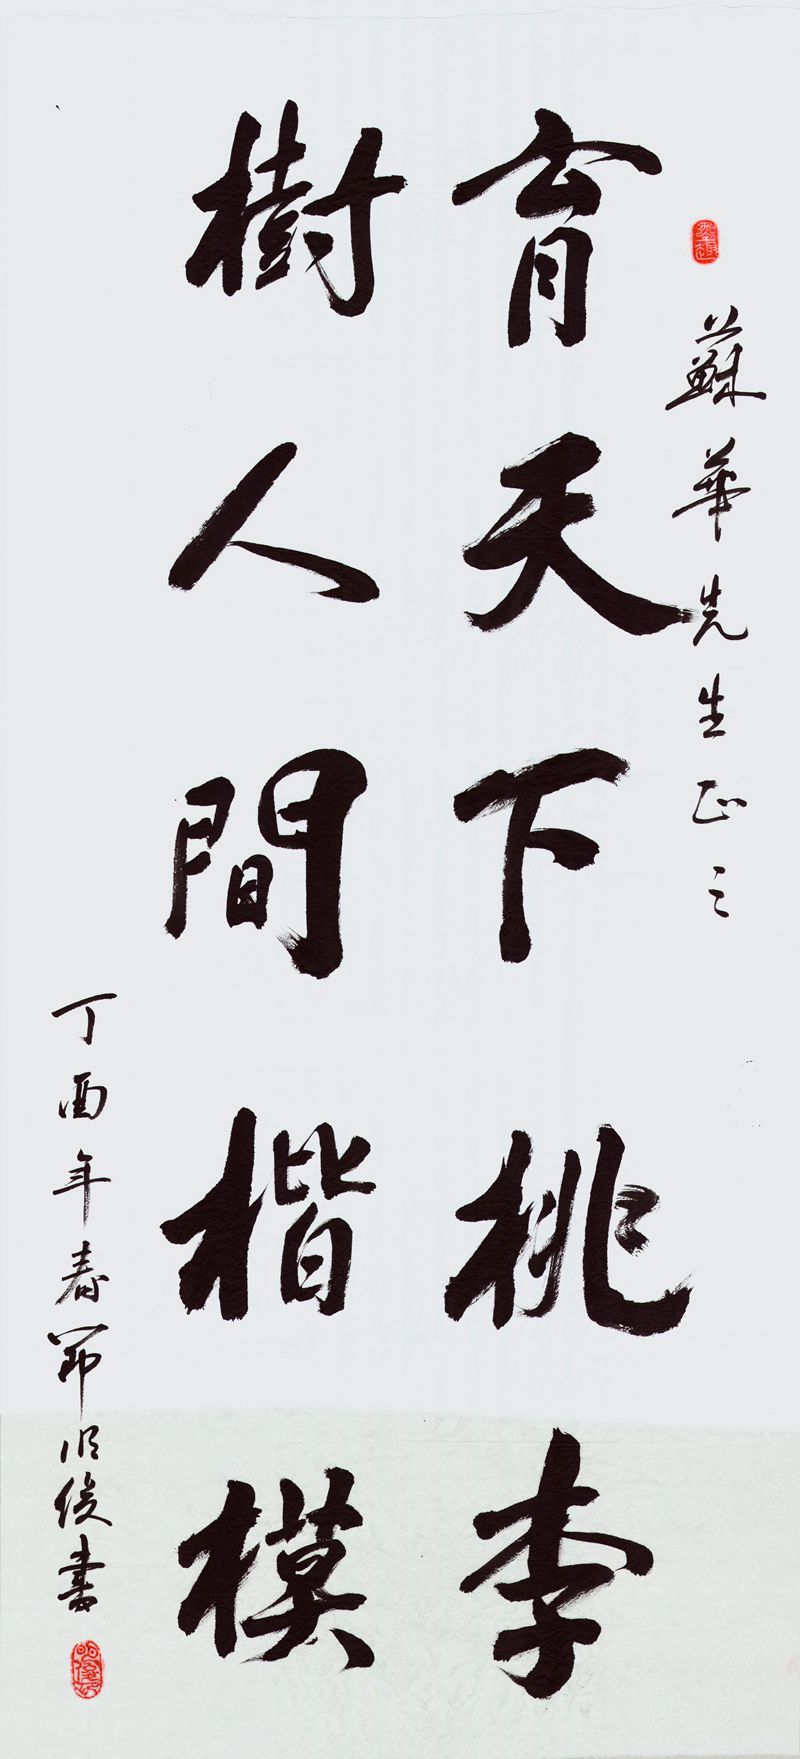 蘇華先生正之
育天下桃李
樹人間楷模
丁酉年春節順俊書